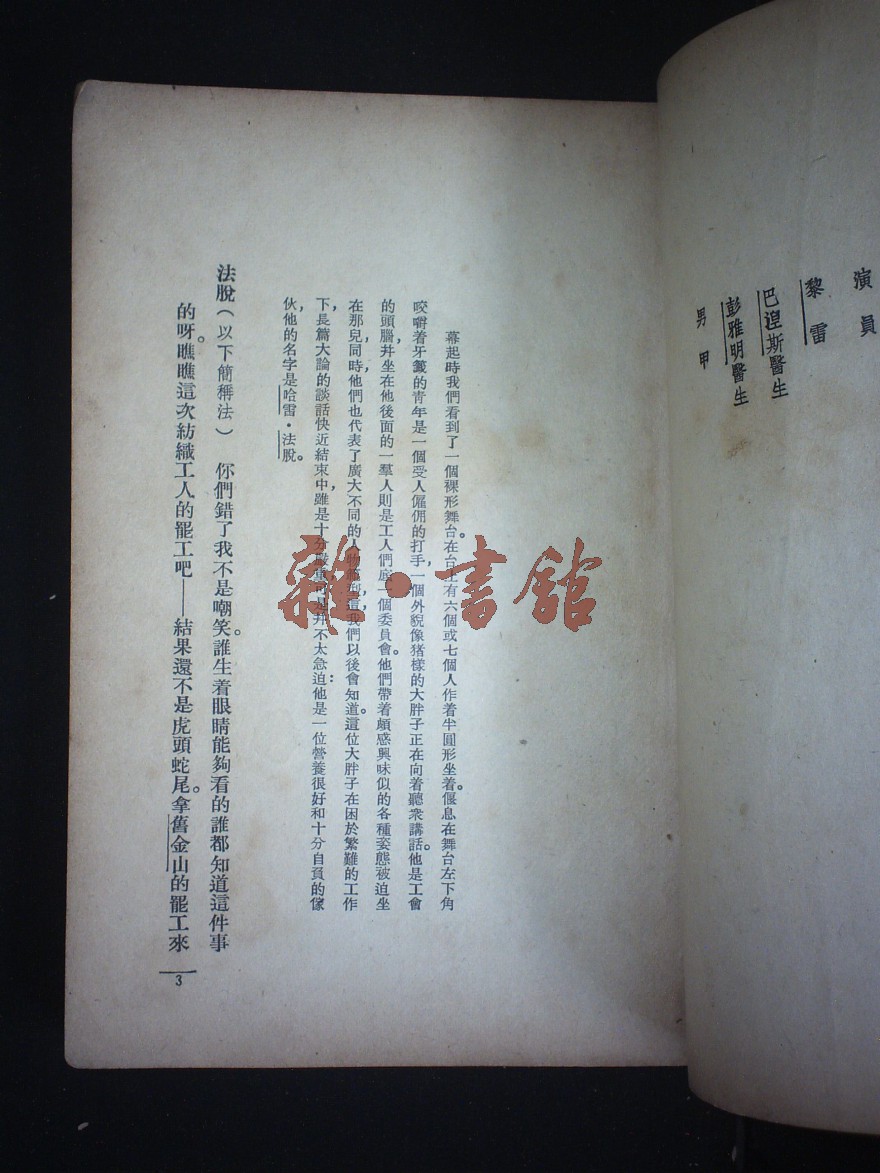 演員
黎雷
巴湼斯醫生
彭雅明醫生
男甲
幕起時我們看到了一個裸形舞台。在台上有六個或七個人作着半圓形坐着。偃息在舞台左下角
咬嚼着牙籤的青年是一個受人僱佣的打手,一個外貌像猪樣的大胖子正在向着聽衆講話。他是工會
的頭腦,幷坐在他後面的一羣人則是工人們底一個委員會。他們帶着頗感興味似的各種姿態被迫坐
在那兒,同時他們也代表了廣大不同的人物 這我們以後會知道。這位大胖子在困於繁難的工作
下,長篇大論的談話快近結束中,雖是十分 是幷不太急迫:他是一位營養很好和十分自負的傢
伙,他的名字是哈雷·法脫。
法脫(以下簡稱法) 你們錯了我不是嘲笑。誰生着眼睛能夠看的誰都知道這件事
的呀。瞧瞧這次紡織工人的罷工吧——結果還不是虎頭蛇尾。拿舊金山的罷工來
3
雜·書館